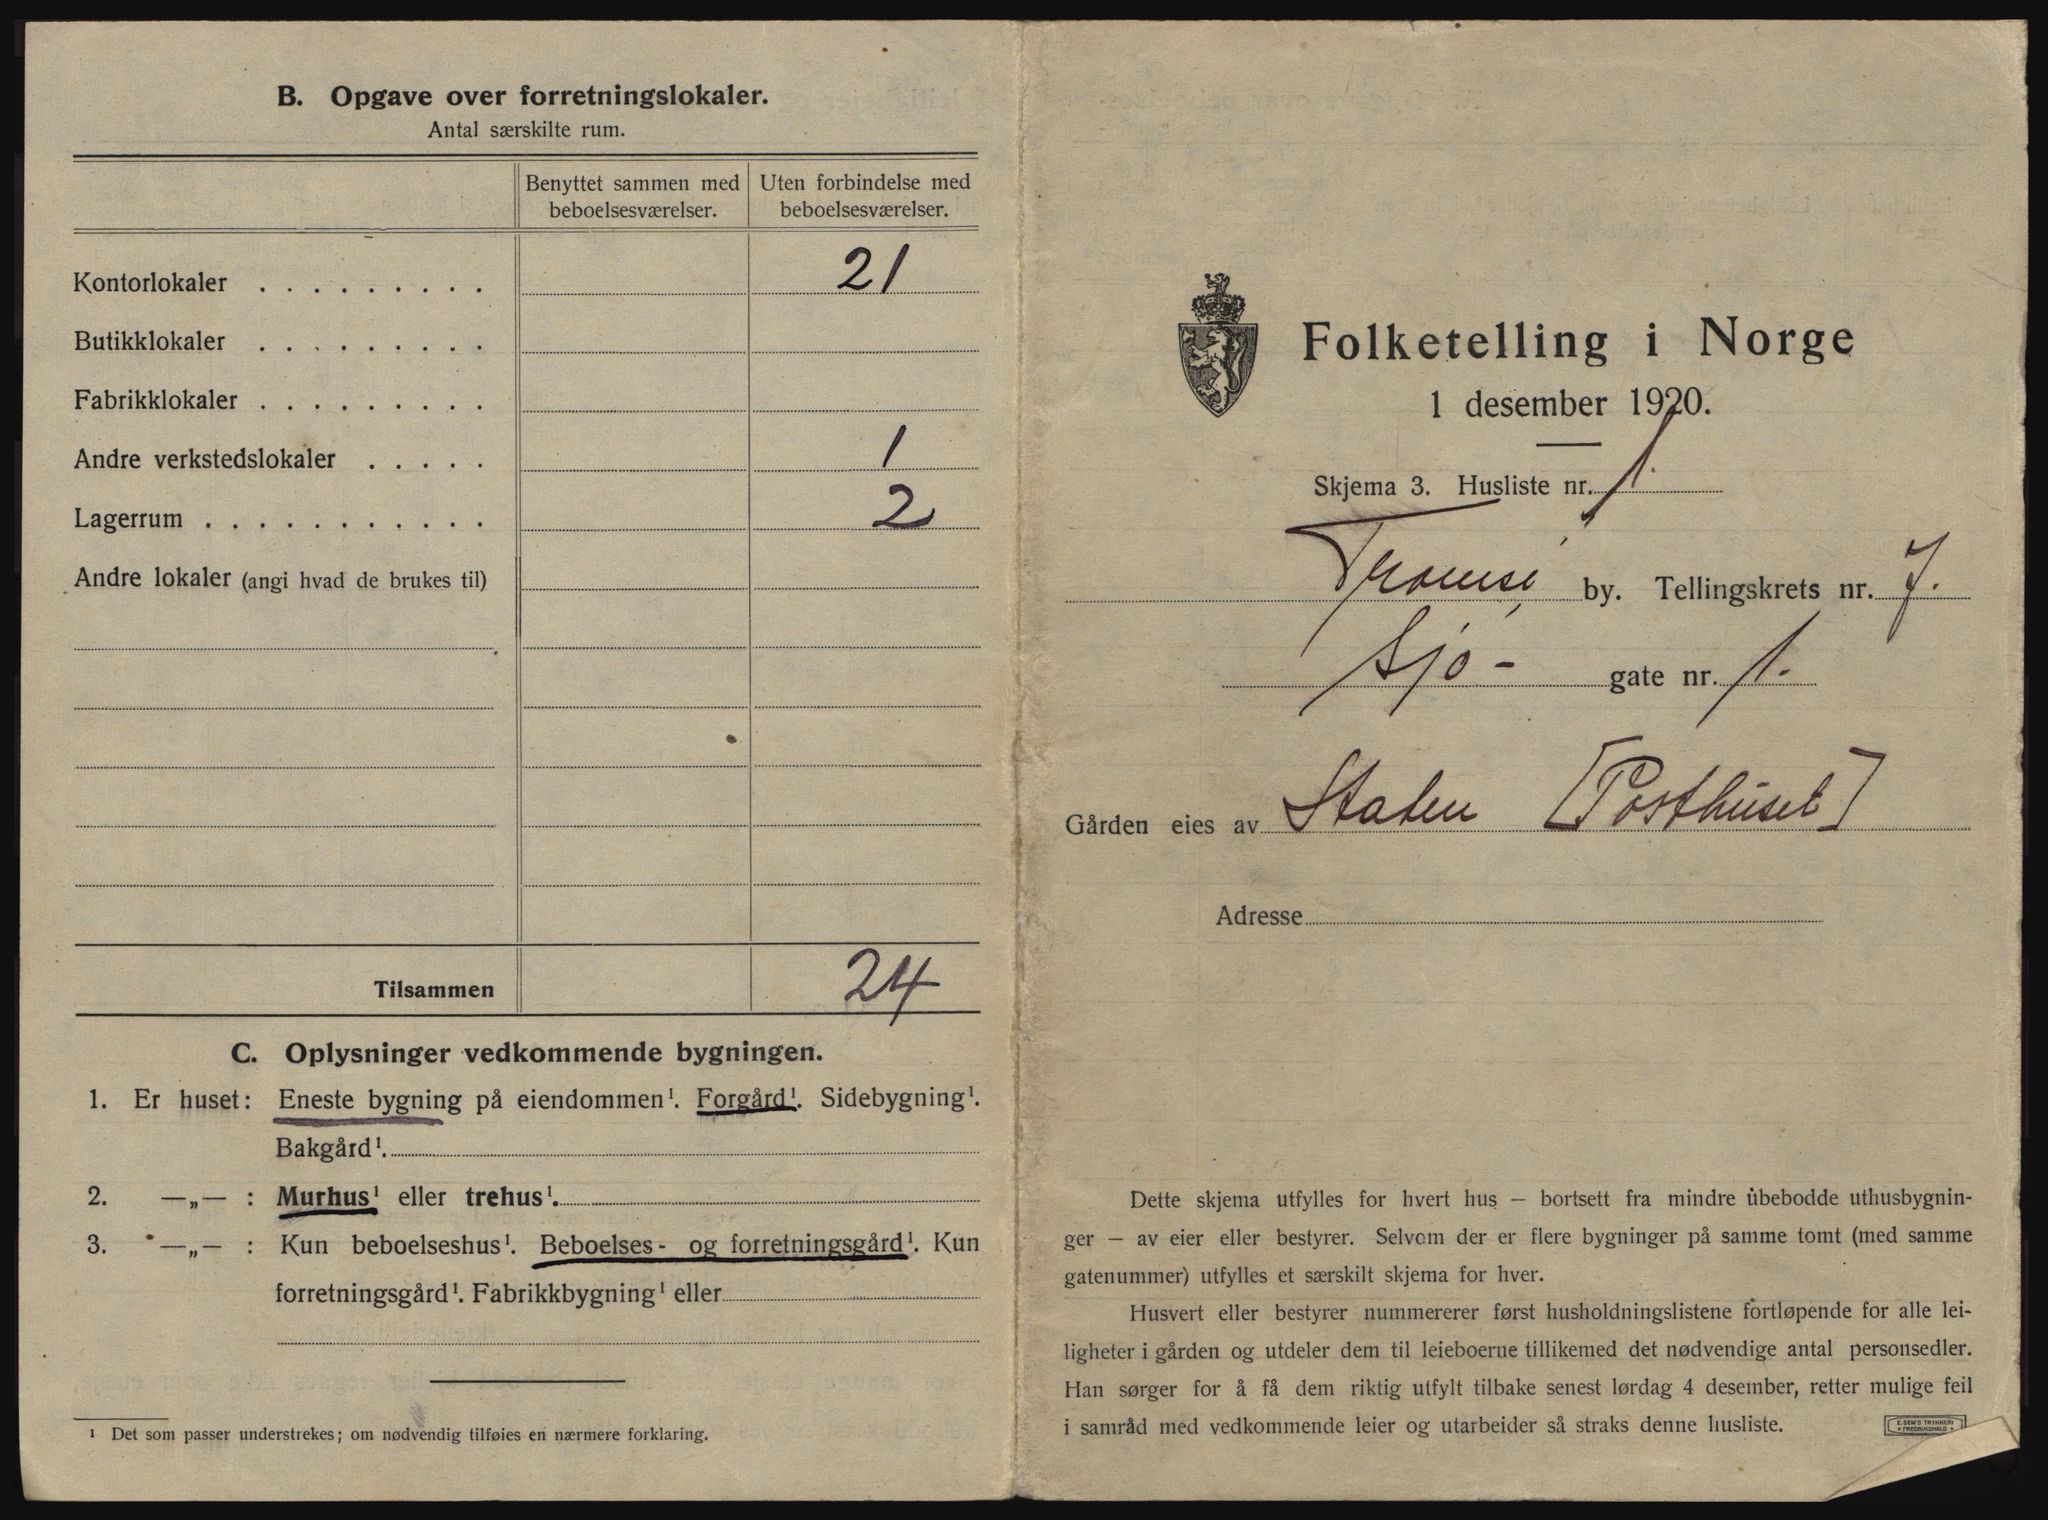 B. Opgave over forretningslokaler.
Antal særskilte rum.
Benyttet sammen med beboelsesværelser.
Uten forbindelse med beboelsesværelser.
Kontorlokaler . . . . . . . . . 21
Butikklokaler . . . . . . . . .
Fabrikklokaler . . . . . . . . .
Andre verkstedslokaler . . . . . 1
Lagerrum . . . . . . . . . . . . 2
Andre lokaler (angi hvad de brukes til)
Tilsammen 24
C. Oplysninger vedkommende bygningen.
1. Er huset: Eneste bygning på eiendommen¹. Forgård¹. Sidebygning¹.
Bakgård¹.
2. —„— : Murhus¹ eller trehus¹.
3. —„— : Kun beboelseshus¹. Beboelses- og forretningsgård¹. Kun
forretningsgård¹. Fabrikkbygning¹ eller
¹ Det som passer understrekes; om nødvendig tilføies en nærmere forklaring.
Folketelling i Norge
1 desember 1920.
Skjema 3. Husliste nr. 1.
Tromsø by. Tellingskrets nr. 7.
Sjø- gate nr. 1.
Gården eies av Staten [Posthuset]
Adresse
Dette skjema utfylles for hvert hus — bortsett fra mindre ubebodde uthusbygnin-
ger — av eier eller bestyrer. Selvom der er flere bygninger på samme tomt (med samme
gatenummer) utfylles et særskilt skjema for hver.
Husvert eller bestyrer nummererer først husholdningslistene fortløpende for alle lei-
ligheter i gården og utdeler dem til leieboerne tillikemed det nødvendige antal personsedler.
Han sørger for å få dem riktig utfylt tilbake senest lørdag 4 desember, retter mulige feil
i samråd med vedkommende leier og utarbeider så straks denne husliste.
E. SEM'S TRYKKERI
* FREDRIKSHALD *